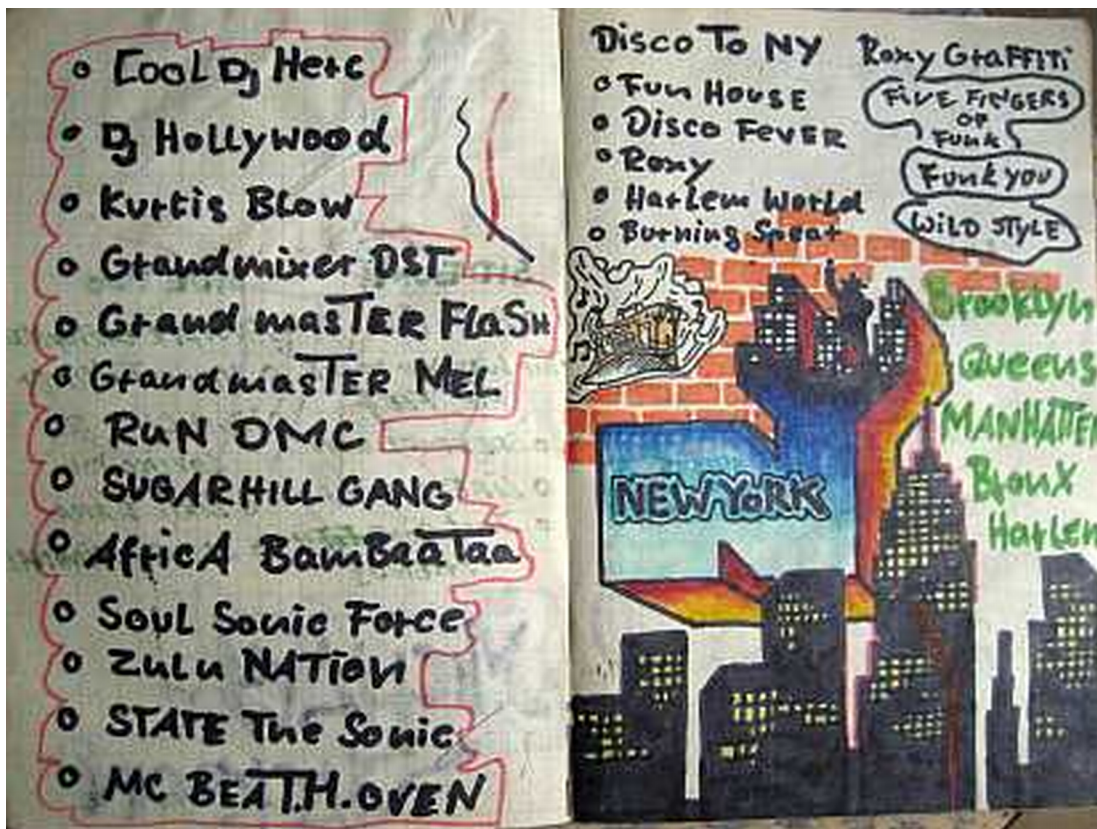 Cool Dj Herc
Dj Hollywood
Kurtis Blow
Grandmixer DST
Grand masTER FLaSH
GrandmasTER MEL
RuN DMC
SUGARHILL GANG
AfricA BamBaaTaa
Soul Sonic Force
Zulu NATion
STATE The Sonic
MC BEAT.H.OVEN
Disco To NY
Fun House
Disco Fever
Roxy
Harlem World
Burning Spear
Roxy Graffiti
FiVE FiNGERS
OF
Funk
Funk you
WiLD STYLE
Brooklyn
Queens
MANHATTEN
Bronx
Harlem
NEW YORK